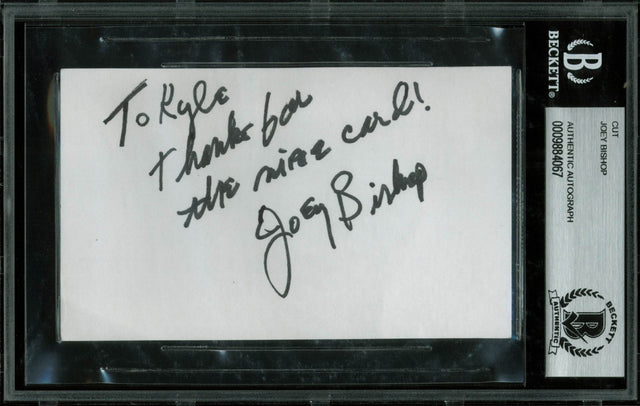 To Kyle
Thanks for
the nice card!
Joey Bishop
B
BECKETT®
CUT
JOEY BISHOP
AUTHENTIC AUTOGRAPH
0009884067
BECKETT
B
AUTHENTIC